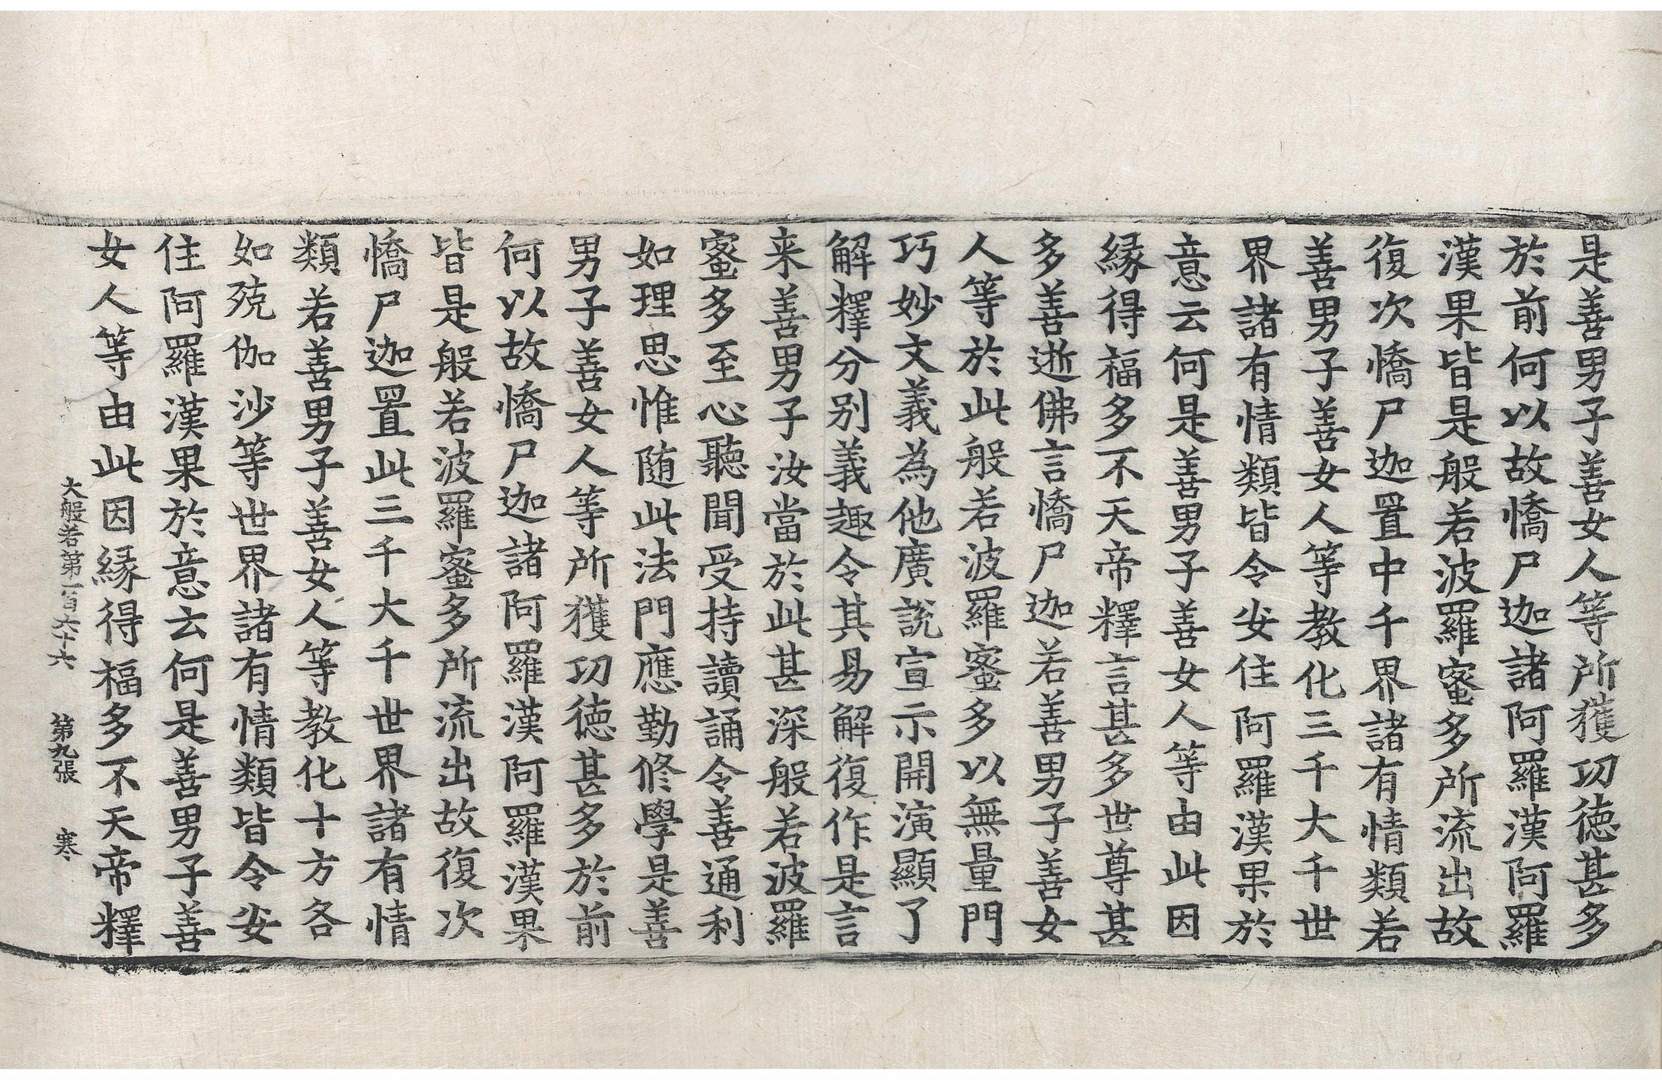 是善男子善女人等所獲功徳甚多
於前何以故憍尸迦諸阿羅漢阿羅
漢果皆是般若波羅蜜多所流出故
復次憍尸迦置中千界諸有情類若
善男子善女人等教化三千大千世
界諸有情類皆令安住阿羅漢果於
意云何是善男子善女人等由此因
縁得福多不天帝釋言甚多世尊甚
多善逝佛言憍尸迦若善男子善女
人等於此般若波羅蜜多以無量門
巧妙文義為他廣說宣示開演顯了
解釋分別義趣令其易解復作是言
来善男子汝當於此甚深般若波羅
蜜多至心聽聞受持讀誦令善通利
如理思惟随此法門應勤修學是善
男子善女人等所獲功徳甚多於前
何以故憍尸迦諸阿羅漢阿羅漢果
皆是般若波羅蜜多所流出故復次
憍尸迦置此三千大千世界諸有情
類若善男子善女人等教化十方各
如殑伽沙等世界諸有情類皆令安
住阿羅漢果於意云何是善男子善
女人等由此因縁得福多不天帝釋
大般若第一百六十六 第九張 寒